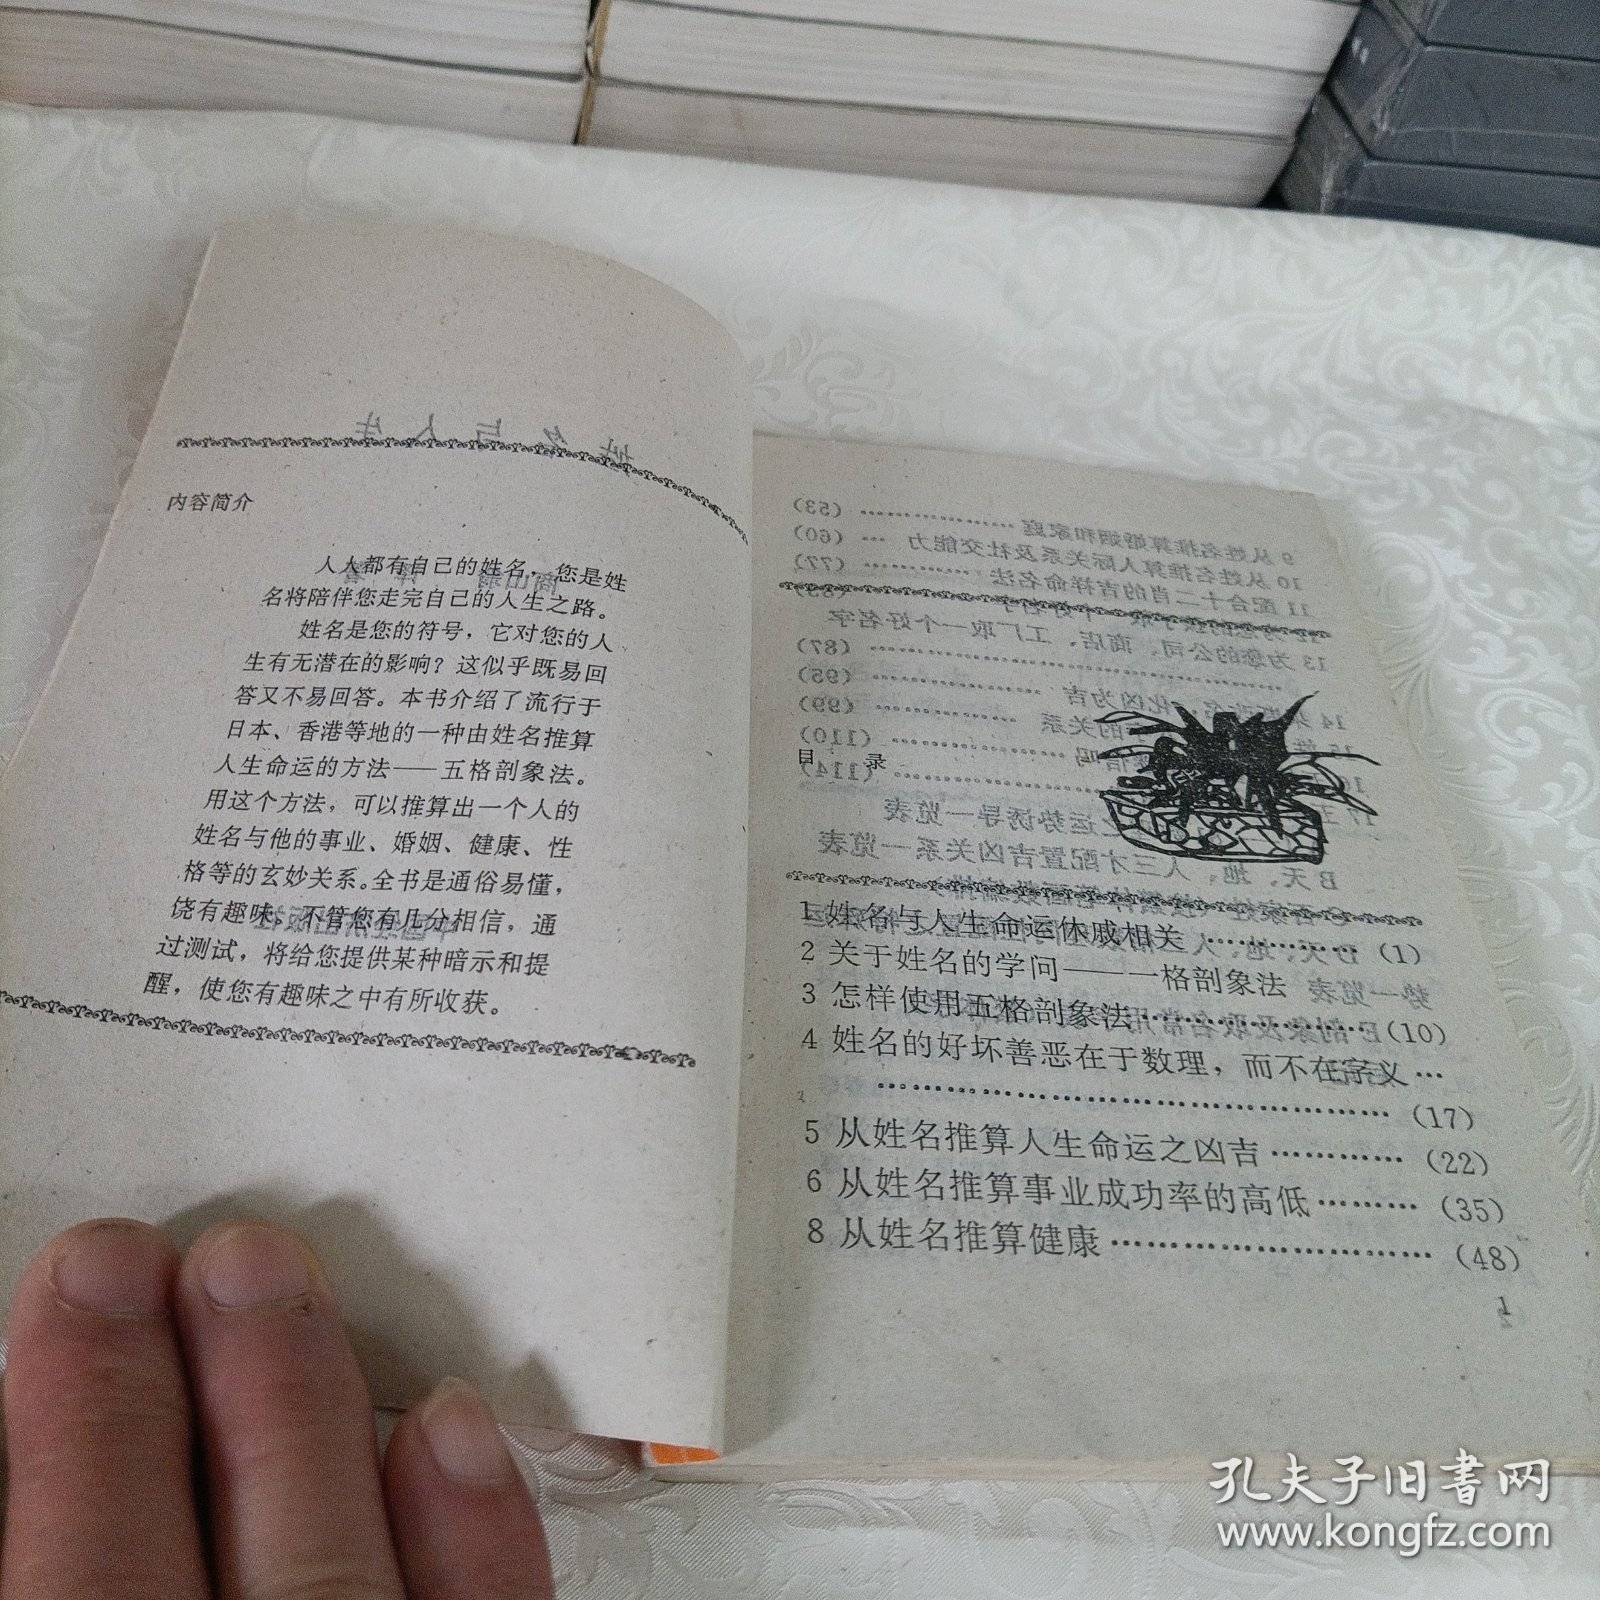 内容简介
人人都有自己的姓名，您是姓
名将陪伴您走完自己的人生之路。
姓名是您的符号，它对您的人
生有无潜在的影响？这似乎既易回
答又不易回答。本书介绍了流行于
日本、香港等地的一种由姓名推算
人生命运的方法——五格剖象法。
用这个方法，可以推算出一个人的
姓名与他的事业、婚姻、健康、性
格等的玄妙关系。全书是通俗易懂，
饶有趣味。不管您有几分相信，通
过测试，将给您提供某种暗示和提
醒，使您有趣味之中有所收获。
目 录
1 姓名与人生命运休戚相关 …………… (1)
2 关于姓名的学问——一格剖象法
3 怎样使用五格剖象法…………………… (10)
4 姓名的好坏善恶在于数理，而不在字义…
…………………………………………… (17)
5 从姓名推算人生命运之凶吉………… (22)
6 从姓名推算事业成功率的高低……… (35)
8 从姓名推算健康………………………… (48)
1
孔夫子旧书网
www.kongfz.com